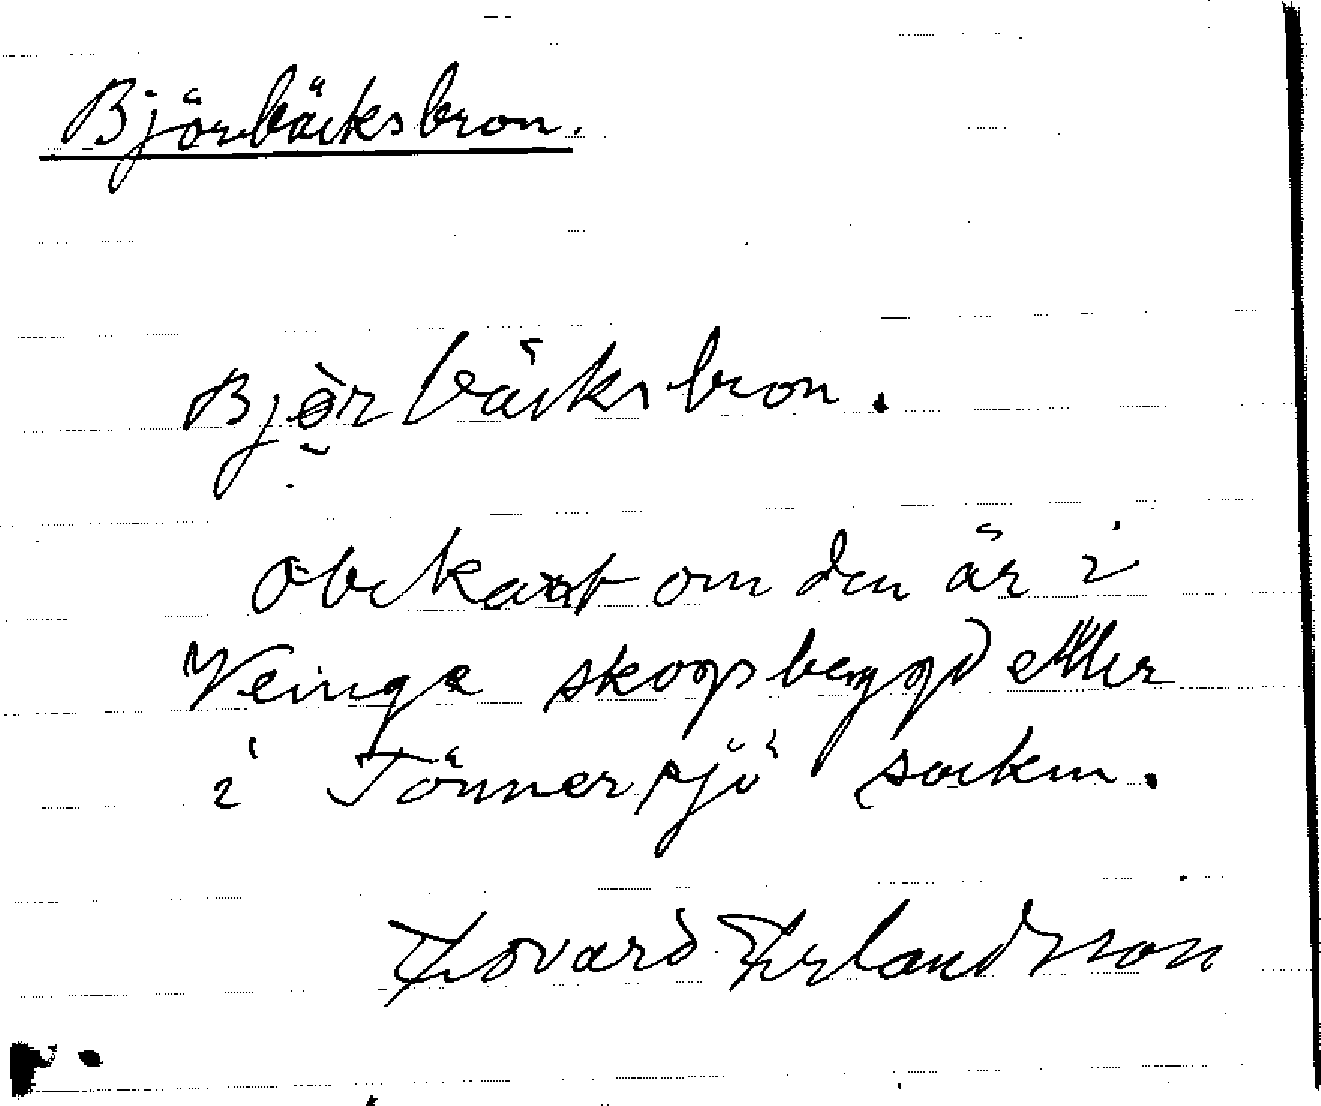 Björbäcksbron.
Björbäcksbron.
obekant om den är i
Veinge skogsbyggd eller
i Tönnersjö socken.
Edvard Erlandsson